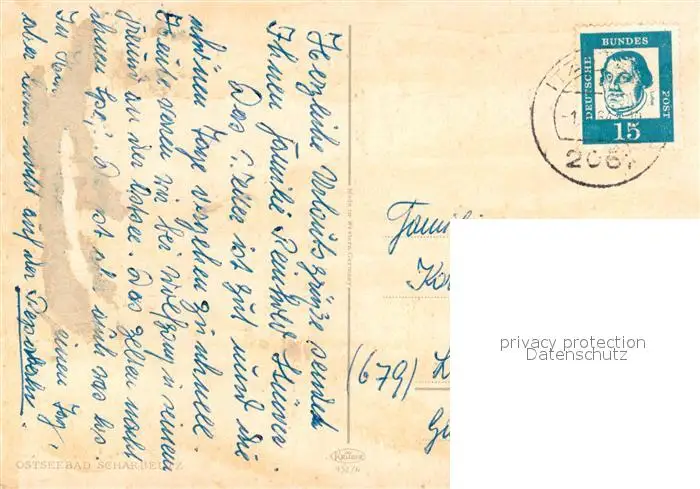 Herzliche Urlaubsgrüße sendet
Ihnen Familie Reinhold
Das Wetter ist gut und die
schönen Tage vergehen zu schnell
Heute waren wir bei Wolfgang u. seinem
Freund an der Ostsee. Das Zelten macht
ihnen Spaß. Es ist aber auch was los.
In einen Tag,
aber nicht auf der
OSTSEEBAD SCHARBEUTZ
Made in Western Germany
KRÜGER
DEUTSCHE BUNDES POST
15
206
Famili
Ko
(679) L
privacy protection
Datenschutz